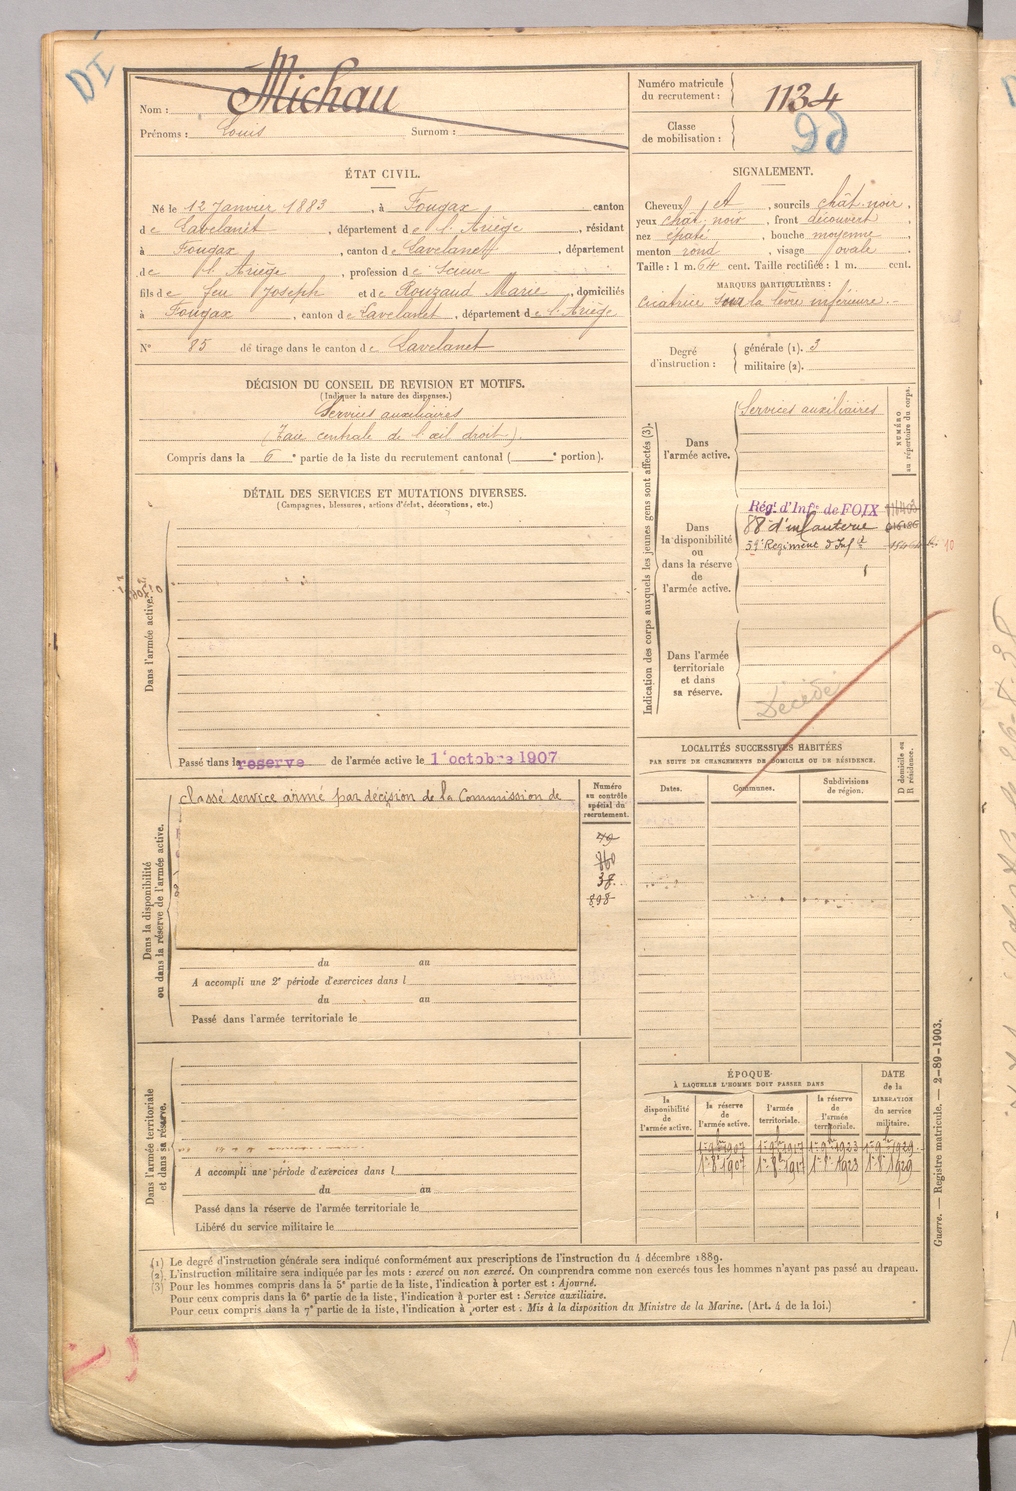 DI
Nom : Michau
Prénoms : Louis Surnom :
Numéro matricule du recrutement : 1134
Classe de mobilisation :
ÉTAT CIVIL.
Né le 12 Janvier 1883, à Fougax canton
de Lavelanet, département de l'Ariège, résidant
à Fougax, canton de Lavelanet, département
de l'Ariège, profession de Scieur
fils de feu Joseph et de Rouzaud Marie, domiciliés
à Fougax, canton de Lavelanet, département de l'Ariège
N° 85 de tirage dans le canton de Lavelanet
SIGNALEMENT.
Cheveux et, sourcils chât. noir,
yeux chât. noir, front découvert
nez épaté, bouche moyenne
menton rond, visage ovale
Taille : 1 m. 64 cent. Taille rectifiée : 1 m. cent.
MARQUES PARTICULIÈRES :
cicatrice sur la lèvre inférieure.-
Degré d'instruction : générale (1). 3
militaire (2).
DÉCISION DU CONSEIL DE REVISION ET MOTIFS.
(Indiquer la nature des dispenses.)
Services auxiliaires
(Taie centrale de l'œil droit).
Compris dans la 6e partie de la liste du recrutement cantonal ( e portion).
DÉTAIL DES SERVICES ET MUTATIONS DIVERSES.
(Campagnes, blessures, actions d'éclat, décorations, etc.)
Dans l'armée active.
Passé dans la reserve de l'armée active le 1 octobre 1907
Indication des corps auxquels les jeunes gens sont affectés (3).
NUMÉRO au répertoire du corps.
Dans l'armée active.
Services auxiliaires
Dans la disponibilité ou dans la réserve de l'armée active.
Rég.t d'Inf.ie de FOIX
88e d'infanterie
59e Régiment d'Inf.ie
10
Dans l'armée territoriale et dans sa réserve.
Décédé
LOCALITÉS SUCCESSIVES HABITÉES
PAR SUITE DE CHANGEMENTS DE DOMICILE OU DE RÉSIDENCE.
D domicile ou R résidence.
Dates. Communes. Subdivisions de région.
Dans la disponibilité ou dans la réserve de l'armée active.
classé service armé par décision de la Commission de
Numéro au contrôle spécial du recrutement.
49
860
38
898
du au
A accompli une 2e période d'exercices dans l
du au
Passé dans l'armée territoriale le
Dans l'armée territoriale et dans sa réserve.
A accompli une période d'exercices dans l
du au
Passé dans la réserve de l'armée territoriale le
Libéré du service militaire le
ÉPOQUE
À LAQUELLE L'HOMME DOIT PASSER DANS
DATE de la LIBÉRATION du service militaire.
la disponibilité de l'armée active. la réserve de l'armée active. l'armée territoriale. la réserve de l'armée territoriale.
1er 9bre 1907 1er 9bre 1917 1er 9bre 1923 1er 9bre 1929
1er 8bre 1907 1er 8bre 1917 1er 8bre 1923 1er 8bre 1929
Guerre. — Registre matricule. — 2-89-1903.
(1) Le degré d'instruction générale sera indiqué conformément aux prescriptions de l'instruction du 4 décembre 1889.
(2) L'instruction militaire sera indiquée par les mots : exercé ou non exercé. On comprendra comme non exercés tous les hommes n'ayant pas passé au drapeau.
(3) Pour les hommes compris dans la 5e partie de la liste, l'indication à porter est : Ajourné.
Pour ceux compris dans la 6e partie de la liste, l'indication à porter est : Service auxiliaire.
Pour ceux compris dans la 7e partie de la liste, l'indication à porter est : Mis à la disposition du Ministre de la Marine. (Art. 4 de la loi.)